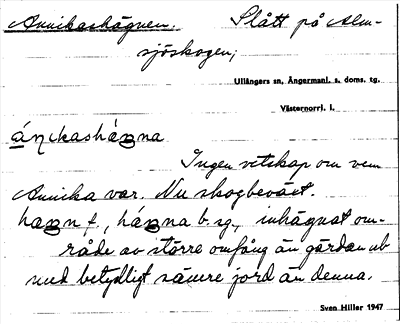 Annikashägnen. Slått på Alm-
sjöskogen;
Ullångers sn, Ångermanl. s. doms. tg.
Västernorrl. l.
Ingen vetskap om vem
Annika var. Nu skogbeväxt.
f., b. sg., inhägnat om-
råde av större omfång än gärdan
med betydligt sämre jord än denna.
Sven Hiller 1947